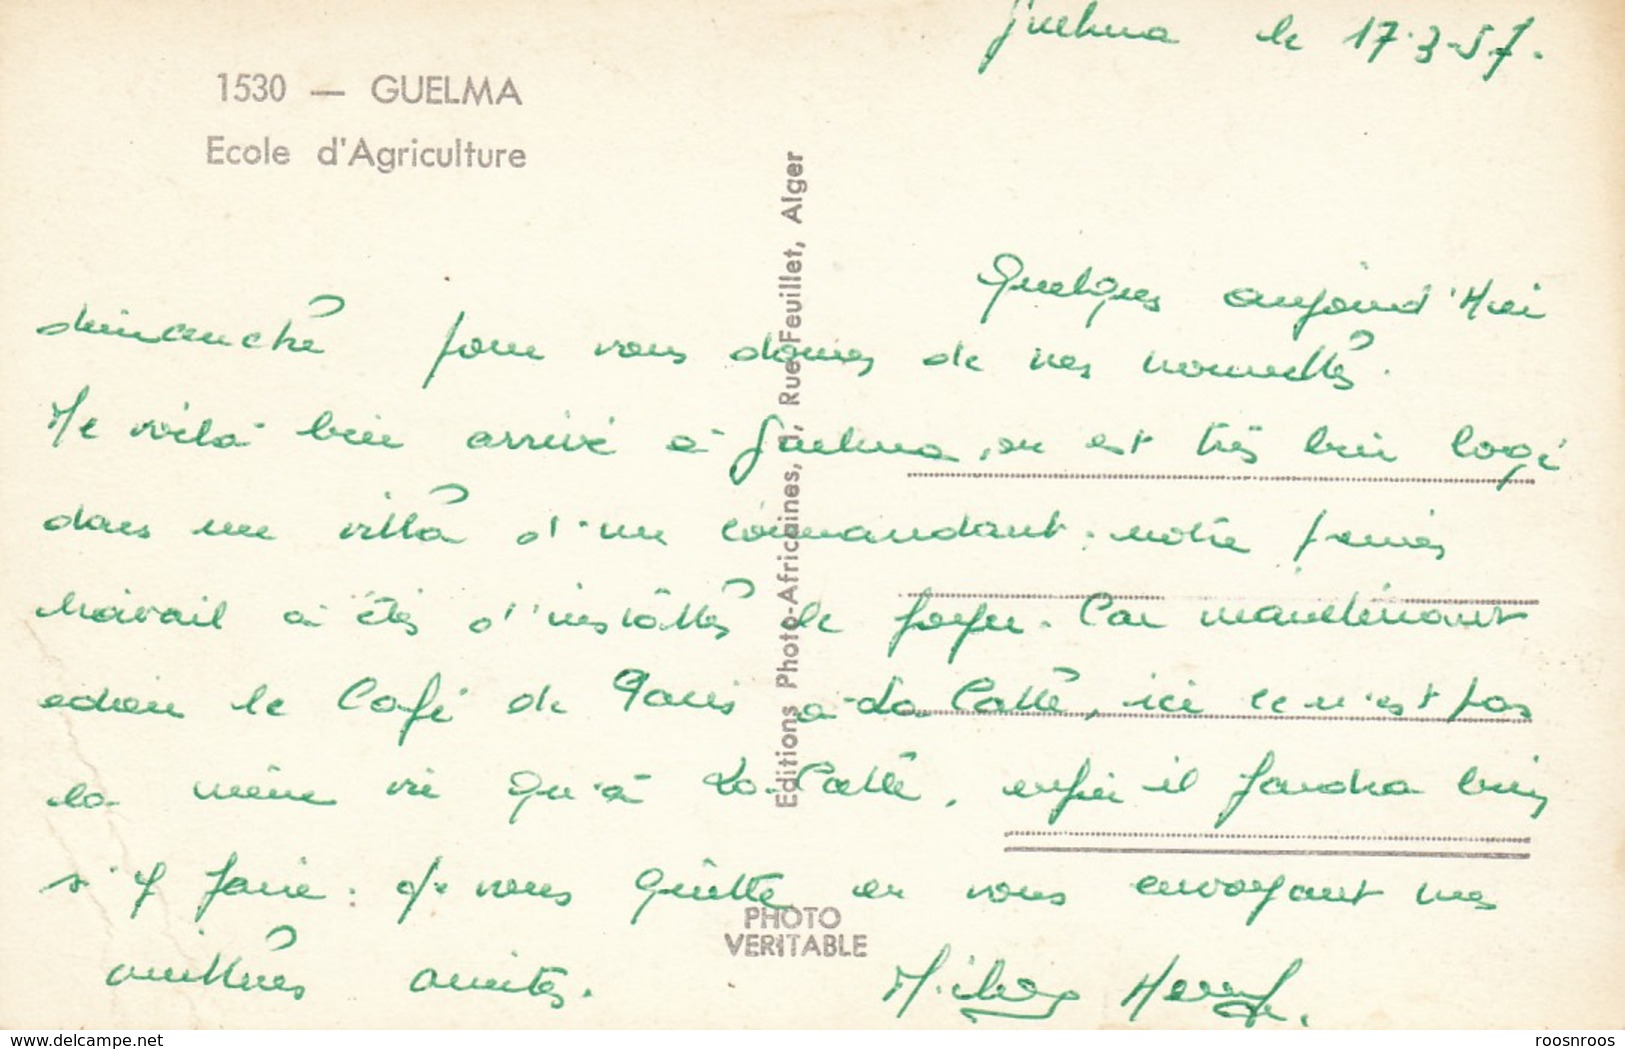 Guelma le 17-3-57.
1530 — GUELMA
Ecole d'Agriculture
Editions Photo-Africaines, Rue Feuillet, Alger
Quelques aujourd'Hui
dimanche pour vous donnes de mes nouvelles.
Me voilà bien arrivé à Guelma, on est très bien logé
dans une villa d'un commandant. notre
travail a étés d'installés le foyer. Car maintenant
adieu le Café de Paris à La Calle, ici ce n'est pas
la même vie qu'à La Calle, enfin il faudra bien
s'y faire. Je vous quitte en vous envoyant mes
meilleures amitiés.
PHOTO
VERITABLE
delcampe.net
roosnroos